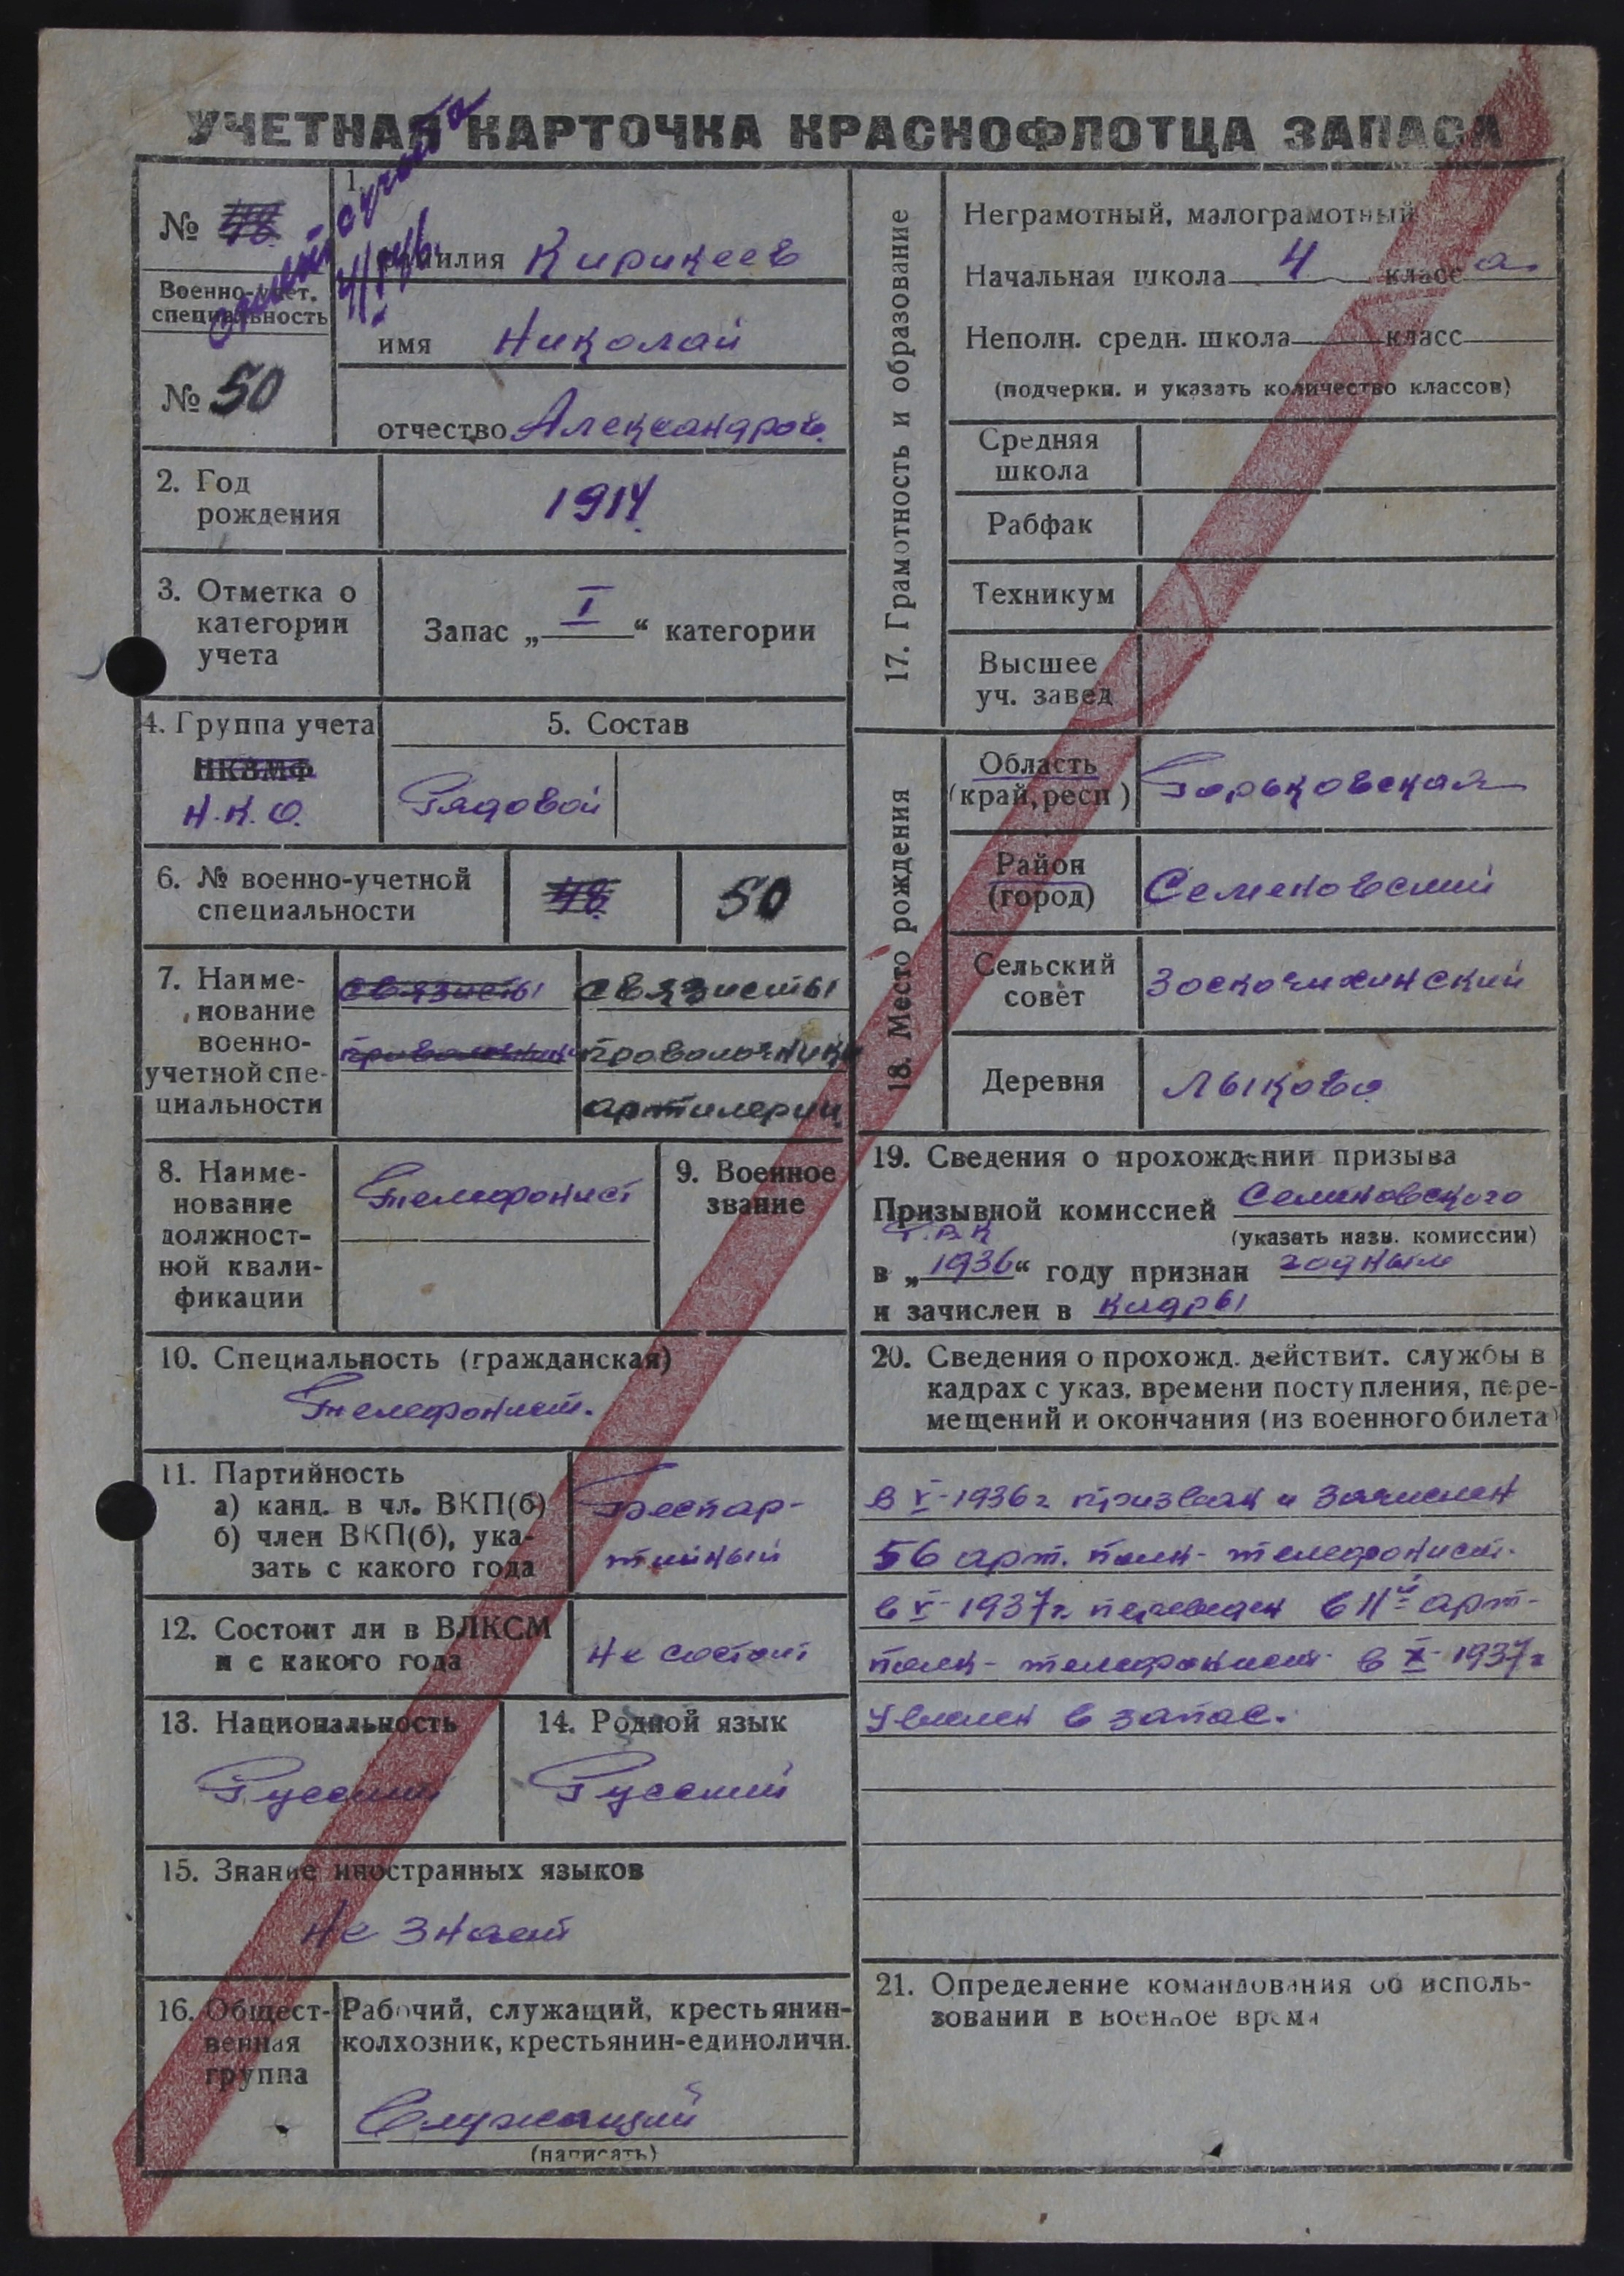 УЧЕТНАЯ КАРТОЧКА КРАСНОФЛОТЦА ЗАПАСА
№ 48
Военно-учет.
специальность
№ 50
1.
фамилия Кирикеев
имя Николай
отчество Александров.
2. Год
рождения
1914
3. Отметка о
категории
учета
Запас „ I “ категории
4. Группа учета
НКВМФ
Н.К.О.
5. Состав
Рядовой
6. № военно-учетной
специальности
48
50
7. Наиме-
нование
военно-
учетной спе-
циальности
связисты
проволочники
связисты
проволочники
артилерии
8. Наиме-
нование
должност-
ной квали-
фикации
Телефонист
9. Военное
звание
10. Специальность (гражданская)
Телефонист.
11. Партийность
а) канд. в чл. ВКП(б)
б) член ВКП(б), ука-
зать с какого года
Беспар-
тийный
12. Состоит ли в ВЛКСМ
и с какого года
не состоит
13. Национальность
Русский
14. Родной язык
Русский
15. Знание иностранных языков
не знает
16. Общест-
венная
группа
Рабочий, служащий, крестьянин-
колхозник, крестьянин-единоличн.
Служащий
(написать)
17. Грамотность и образование
Неграмотный, малограмотный
Начальная школа 4 класс а
Неполн. средн. школа класс
(подчеркн. и указать количество классов)
Средняя
школа
Рабфак
Техникум
Высшее
уч. завед
18. Место рождения
Область
(край, респ)
Горьковская
Район
(город)
Семеновский
Сельский
совет
Зоскочихинский
Деревня
Лыково
19. Сведения о прохождении призыва
Призывной комиссией Семеновского
Р.В.К
(указать назв. комиссии)
в „1936“ году признан годным
и зачислен в кадры
20. Сведения о прохожд. действит. службы в
кадрах с указ. времени поступления, пере-
мещений и окончания (из военного билета)
в V-1936г призван и зачислен
56 арт. полк - телефонист.
в V-1937г. переведен в 11й арт-
полк - телефонист в X-1937г
уволен в запас.
21. Определение командования об исполь-
зовании в военное время